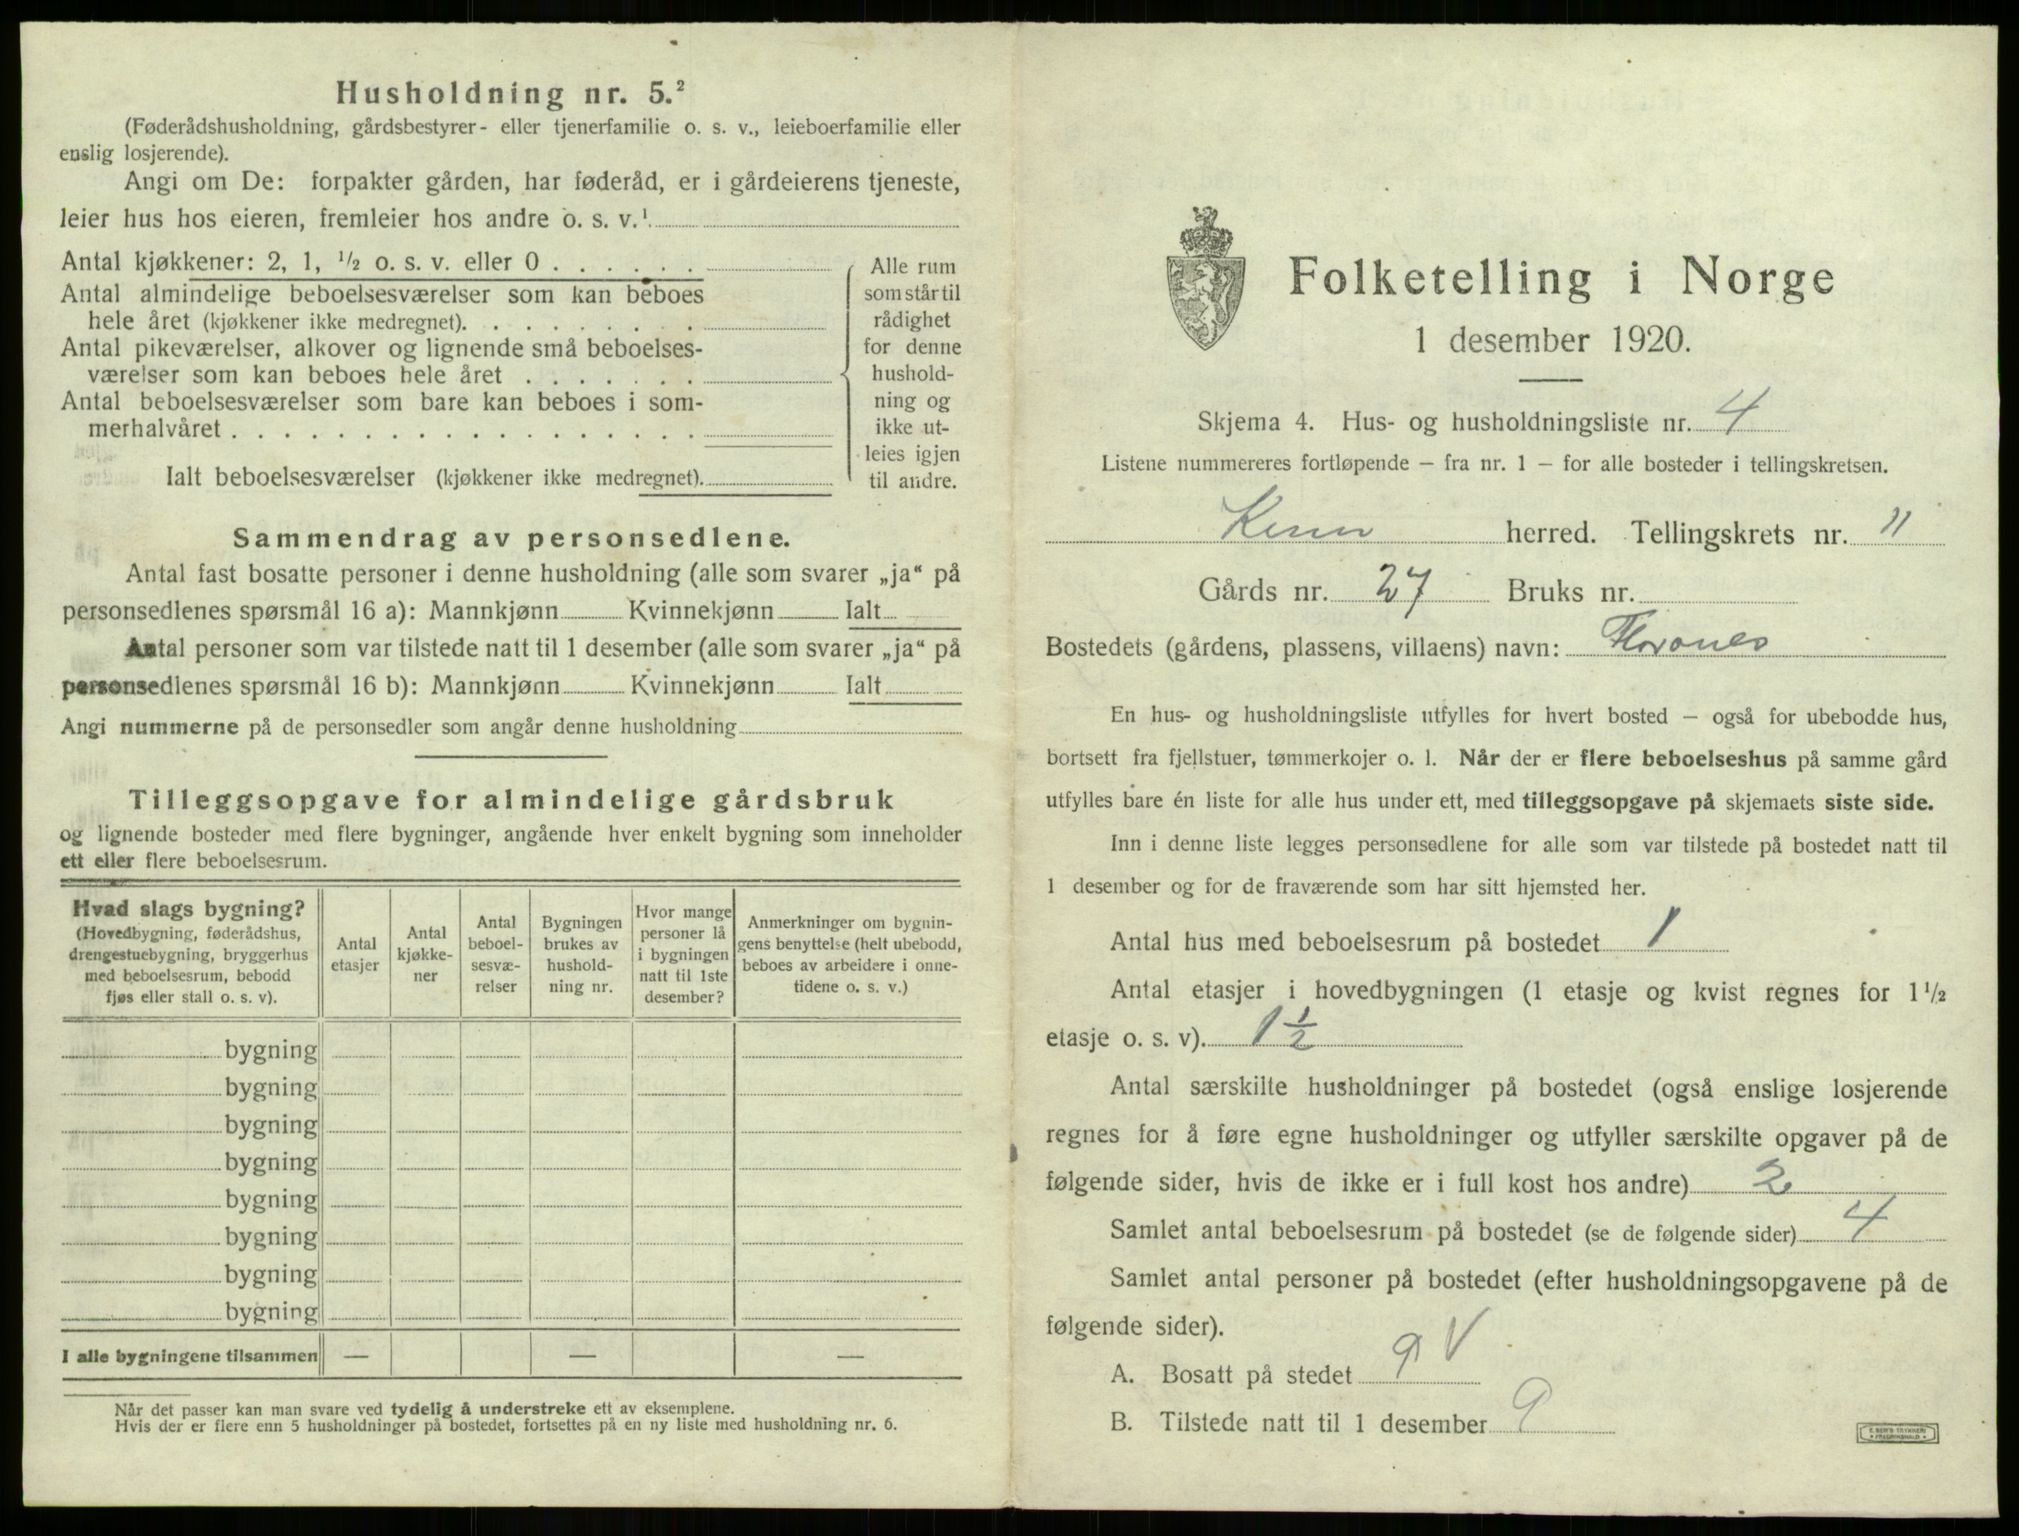 Husholdning nr. 5.²
(Føderådshusholdning, gårdsbestyrer- eller tjenerfamilie o. s. v., leieboerfamilie eller
enslig losjerende).
Angi om De: forpakter gården, har føderåd, er i gårdeierens tjeneste,
leier hus hos eieren, fremleier hos andre o. s. v.¹
Antal kjøkkener: 2, 1, ½ o. s. v. eller 0 . . . . . .
Antal almindelige beboelsesværelser som kan beboes
hele året (kjøkkener ikke medregnet). . . . . . . . .
Antal pikeværelser, alkover og lignende små beboelses-
værelser som kan beboes hele året . . . . . . .
Antal beboelsesværelser som bare kan beboes i som-
merhalvåret . . . . . . . . . . . . . . . . . .
Ialt beboelsesværelser (kjøkkener ikke medregnet).
Alle rum
som står til
rådighet
for denne
hushold-
ning og
ikke ut-
leies igjen
til andre.
Sammendrag av personsedlene.
Antal fast bosatte personer i denne husholdning (alle som svarer „ja“ på
personsedlenes spørsmål 16 a): Mannkjønn Kvinnekjønn Ialt
Antal personer som var tilstede natt til 1 desember (alle som svarer „ja“ på
personsedlenes spørsmål 16 b): Mannkjønn Kvinnekjønn Ialt
Angi nummerne på de personsedler som angår denne husholdning
Tilleggsopgave for almindelige gårdsbruk
og lignende bosteder med flere bygninger, angående hver enkelt bygning som inneholder
ett eller flere beboelsesrum.
Hvad slags bygning?
(Hovedbygning, føderådshus,
drengestuebygning, bryggerhus
med beboelsesrum, bebodd
fjøs eller stall o. s. v).
Antal
etasjer
Antal
kjøkke-
ner
Antal
beboel-
sesvæ-
relser
Bygningen
brukes av
hushold-
ning nr.
Hvor mange
personer lå
i bygningen
natt til 1ste
desember?
Anmerkninger om bygnin-
gens benyttelse (helt ubebodd,
beboes av arbeidere i onne-
tidene o. s. v.)
bygning
bygning
bygning
bygning
bygning
bygning
bygning
bygning
I alle bygningene tilsammen — — —
Når det passer kan man svare ved tydelig å understreke ett av eksemplene.
Hvis der er flere enn 5 husholdninger på bostedet, fortsettes på en ny liste med husholdning nr. 6.
Folketelling i Norge
1 desember 1920.
Skjema 4. Hus- og husholdningsliste nr. 4
Listene nummereres fortløpende — fra nr. 1 — for alle bosteder i tellingskretsen.
Kinn herred. Tellingskrets nr. 11
Gårds nr. 27 Bruks nr.
Bostedets (gårdens, plassens, villaens) navn: Florønes
En hus- og husholdningsliste utfylles for hvert bosted — også for ubebodde hus,
bortsett fra fjellstuer, tømmerkojer o. l. Når der er flere beboelseshus på samme gård
utfylles bare én liste for alle hus under ett, med tilleggsopgave på skjemaets siste side.
Inn i denne liste legges personsedlene for alle som var tilstede på bostedet natt til
1 desember og for de fraværende som har sitt hjemsted her.
Antal hus med beboelsesrum på bostedet 1
Antal etasjer i hovedbygningen (1 etasje og kvist regnes for 1½
etasje o. s. v). 1½
Antal særskilte husholdninger på bostedet (også enslige losjerende
regnes for å føre egne husholdninger og utfyller særskilte opgaver på de
følgende sider, hvis de ikke er i full kost hos andre) 2
Samlet antal beboelsesrum på bostedet (se de følgende sider) 4
Samlet antal personer på bostedet (efter husholdningsopgavene på de
følgende sider).
A. Bosatt på stedet 9 V
B. Tilstede natt til 1 desember 9